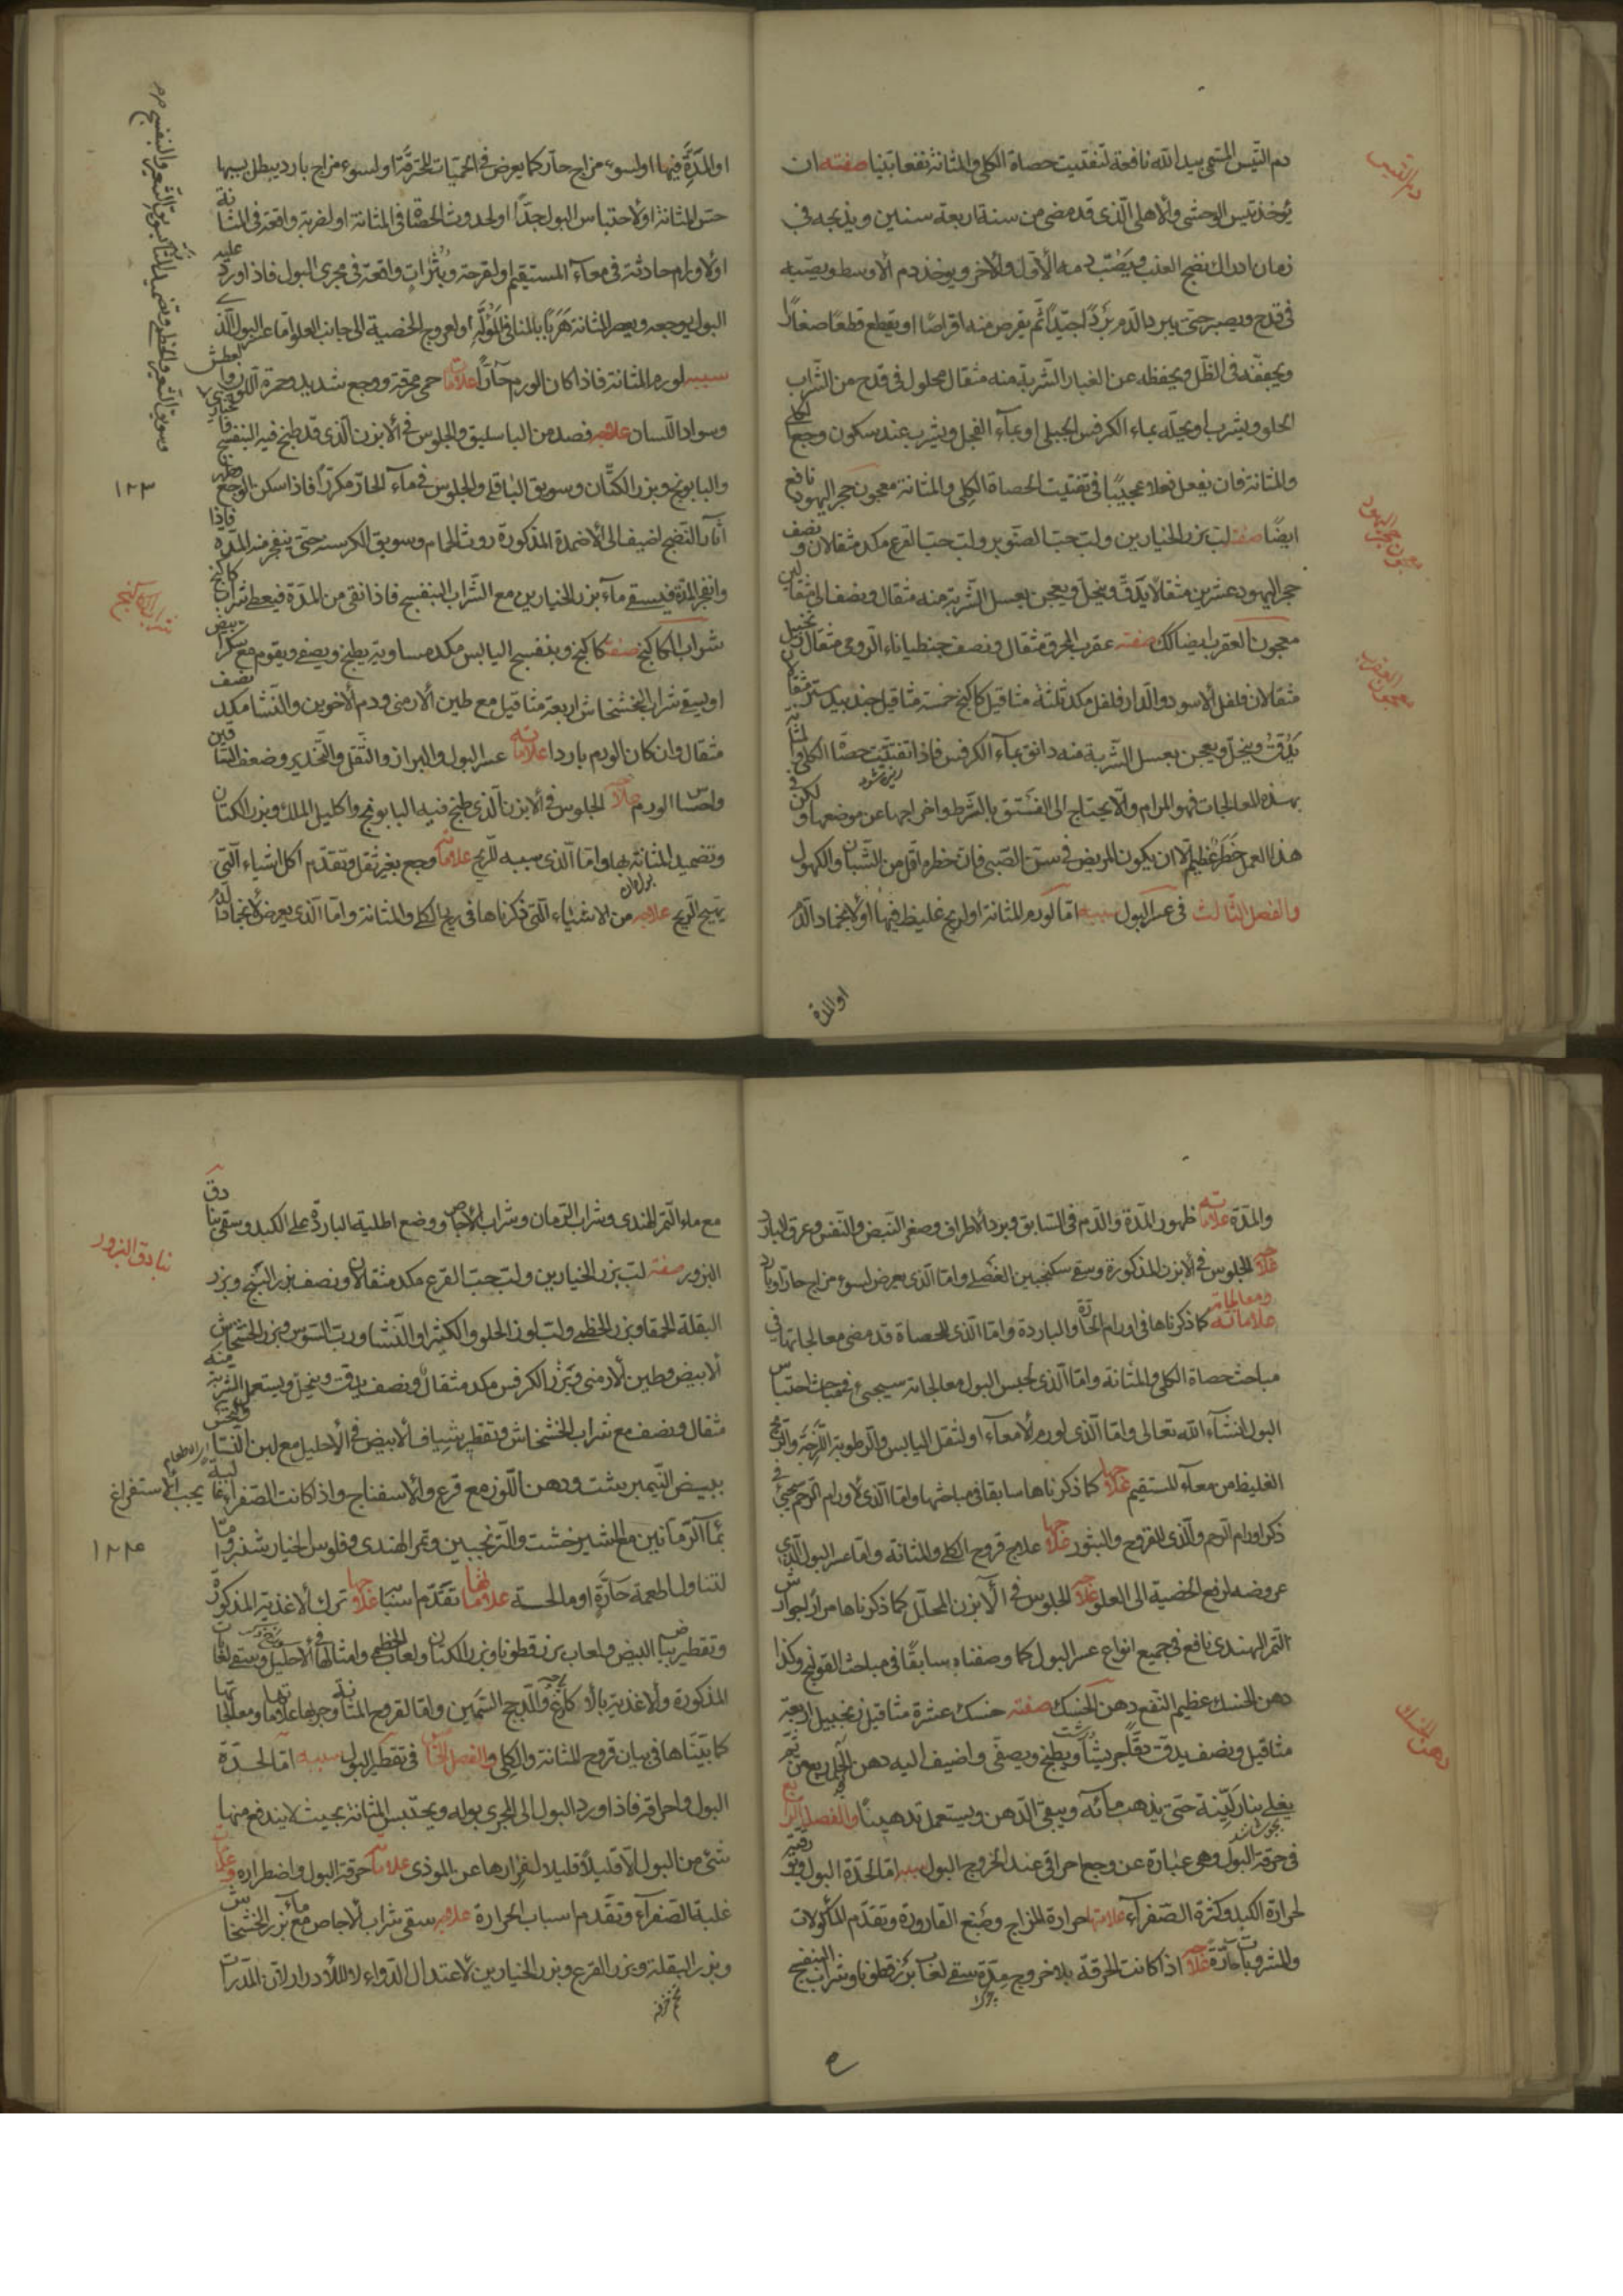 دم التيس المسمى بيد الله نافعة لتفتيت حصاة الكلى والمثانة نفعا بينا صفته ان
يؤخذ تيس الوحشى والاهلى الذى قد مضى من سنة اربعة سنين ويذبحه فى
زمان ادراك نضج العنب ويصب دمه الاول والاخر ويوخذ دم الاوسط ويصبه
فى قدح ويصبر حتى يبرد الدم بردا جيدا ثم يقرص منه اقراصا او يقطع قطعا صغارا
ويجففه فى الظل ويحفظه عن الغبار الشربة منه مثقال محلول فى قدح من الشراب
الحلو ويشرب او يحله بماء الكرفس الجبلى او بماء الفجل ويشرب عند سكون وجع الكلى
والمثانة فان يفعل فعلا عجيبا فى تفتيت الحصاة الكلى والمثانة معجون حجر اليهود نافع
ايضا صفته لب بزر الخيارين ولب حب الصنوبر ولب حب القرع مكد مثقالان ونصف
حجر اليهود عشرين مثقالا يدق وينخل ويعجن بعسل الشربة منه مثقال ونصف الى مثقالين
معجون العقرب ايضا كك صفته عقرب المحرق مثقال ونصف جنطيانا الرومى مثقال زنجبيل
مثقالان فلفل الاسود والدار فلفل مكد ثلثة مثاقيل كاكنج خمسة مثاقيل جندبيدستر مثقال
يدق وينخل ويعجن بعسل الشربة منه دانق بماء الكرفس فاذا تفتيت حصاة الكلى والمثانة
بهذه المعالجات فهو المرام والا يحتاج الى الفشتق بالشرط واخراجها عن موضعها ولكن فى
هذا العمل خطر عظيم الا ان يكون المريض فى سن الصبى فان خطره اقل من الشبان والكهول
والفصل الثالث فى عسر البول سببه اما لورم المثانة او لريح غليظ فيها او لانجماد الدم
او المدة
دم التيس
معجون حجر اليهود
معجون العقرب
او المدة فيها او لسوء مزاج حار كما يعرض فى الحميات المحترقة او لسوء مزاج بارد يبطل بسببها
حس المثانة او لاحتباس البول جدا او لحدوث الحصاة فى المثانة او لضربة واقعة فى المثانة
او لاورام حادثة فى معاء المستقيم او لقرحة وبثرات واقعة فى مجرى البول فاذا ورد عليه
البول يوجعه ويعصر المثانة هربا بالمنافى المولم او لعروج الخصية الى جانب العلو اما عسر البول الذى
سببه لورم المثانة فاذا كان الورم حارا علاماته حمى محرقة ووجع شديد وحمرة اللون والعطش
وسواد اللسان علاجه فصد من الباسليق والجلوس فى الابزن الذى قد طبخ فيه البنفسج
والبابونج وبزر الكتان وسويق الباقلى والجلوس فى ماء الحار مكررا فاذا سكن الوجع
اثار النضج اضيف الى الاضمدة المذكورة روث الحمام وسويق الكرسنه حتى ينفجر منه المدة فاذا
وانفجر المدة فيسقى ماء بزر الخيارين مع الشراب البنفسج فاذا نقى من المدة فيعطى شراب كاكنج
شراب الكاكنج صفته كاكنج وبنفسج اليابس مكد مساوية يطبخ ويصفى ويقوم مع سكر ابيض
او يسقى شراب الخشخاش اربعة مثاقيل مع طين الارمنى ودم الاخوين والنشا مكد نصف
مثقال وان كان الورم باردا علاماته عسر البول والبراز والثقل والتخدير وضعف الساقين
واحتسا الورم علاجه الجلوس فى الابزن الذى طبخ فيه البابونج واكليل الملك وبزر الكتان
وتضميد المثانة بها واما الذى سببه الريح علاماته وجع بغير ثقل وتقدم اكل اشياء التى
يهيج الريح علاجه من الاشياء التى ذكرناها فى ريح الكلى والمثانة واما الذى يعرض لانجماد الدم
١٢٣
شراب الكاكنج
والمدة علاماته ظهور المدة والدم فى السابق وبرد الاطراف وصغر النبض والتنفس وعرق البارد
علاجه الجلوس فى الابزن المذكورة وسقى سكنجبين العنصلى واما الذى يعرض لسوء مزاج حار او بارد
علاماته ومعالجاته كما ذكرناها فى اورام الحارة والباردة واما الذى للحصاة قد مضى معالجاتها فى
مباحث حصاة الكلى والمثانة واما الذى لحبس البول معالجاته سيجىء فى مباحث احتباس
البول انشاء الله تعالى واما الذى لورم الامعاء او لثقل اليابس والرطوبة اللزجة والريح
الغليظ من معاء المستقيم علاجها كما ذكرناها سابقا فى مباحثها واما الذى لاورام الرحم سيجىء فى
ذكر اورام الرحم والذى للقروح والبثور علاجها علاج قروح الكلى والمثانة واما عسر البول الذى
عروضه لرفع الخصية الى العلو علاجه الجلوس فى الابزن المحلل كما ذكرناها مرارا جوارش
التمر الهندى نافع فى جميع انواع عسر البول كما وصفناه سابقا فى مباحث القولنج وكذا
دهن الخسك عظيم النفع دهن الخسك صفته خسك عشرة مثاقيل زنجبيل اربعة
مثاقيل ونصف يدق دقا جريشا ويطبخ ويصفى واضيف اليه دهن الحل ربع من ثم
يغلى بنار لينة حتى يذهب مائه ويبقى الدهن ويستعمل تدهينا والفصل الرابع
فى حرقة البول وهى عبارة عن وجع احراقى عند الخروج البول سببه اما لحدة البول ورقته
لحرارة الكبد وكثرة الصفراء علامتها حرارة المزاج وصبغ القارورة وتقدم الماكولات
والمشروبات حارة علاجه اذا كانت الحرقة بلا خروج مدة يسقى لعاب بزر قطونا وشراب البنفسج
دهن الخسك
مع ماء التمر الهندى وشراب الرمان وشراب الاجاص ووضع اطلية الباردة على الكبد وسقى بنادق
البزور صفته لب بزر الخيارين ولب حب القرع مكد مثقالان ونصف بزر البنج وبزر
البقلة الحمقا وبزر الخطمى ولب لوز الحلو والكثيرا والنشا ورب السوس وبزر الخشخاش
الابيض وطين الارمنى وبزر الكرفس مكد مثقال ونصف يدق وينخل ويستعمل الشربة منه
مثقال ونصف مع شراب الخشخاش وتقطير شياف الابيض فى الاحليل مع لبن النسا
ببيض النيمبرشت ودهن اللوز مع قرع والاسفناج واذا كانت الصفرا غالبة يجب الاستفراغ
بماء الرمانين مع الشيرخشت والترنجبين وتمر الهندى وفلوس الخيار شنبر واما
لتناول اطعمة حارة او مالحة علاماتها تقدم اسبابها علاجها ترك الاغذية المذكورة
وتقطير بياض البيض ولعاب بزر قطونا وبزر الكتان ولعاب الخطمى وامثالها فى الاحليل وسقى لعابات
المذكورة والاغذية بالاكارع والدجاج السمين واما لقروح المثانة وجربها علاماتها ومعالجاتها
كما بيناها فى بيان قروح المثانة والكلى والفصل الخامس فى تقطير البول سببه اما لحدة
البول واحراقه فاذا ورد البول الى المجرى بوله ويحتبس المثانة بحيث لا يندفع منها
شىء من البول الا قليلا قليلا لفرارها عن الموذى علاماته حرقة البول واضطراره
غلبة الصفراء وتقدم اسباب الحرارة علاجه سقى شراب الاجاص مع ماء بزر الخشخاش
وبزر البقلة وبزر القرع وبزر الخيارين لاعتدال الدواء لا للادرار لان المدرات
بنادق البزور
١٢٤